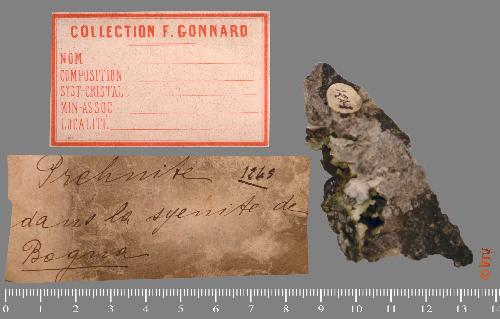 COLLECTION F. GONNARD
NOM
COMPOSITION
SYST-CRISTAL
MIN-ASSOC
LOCALITÉ
Prehnite 1263
dans la syenite de
Bogna
0 1 2 3 4 5 6 7 8 9 10 11 12 13 14